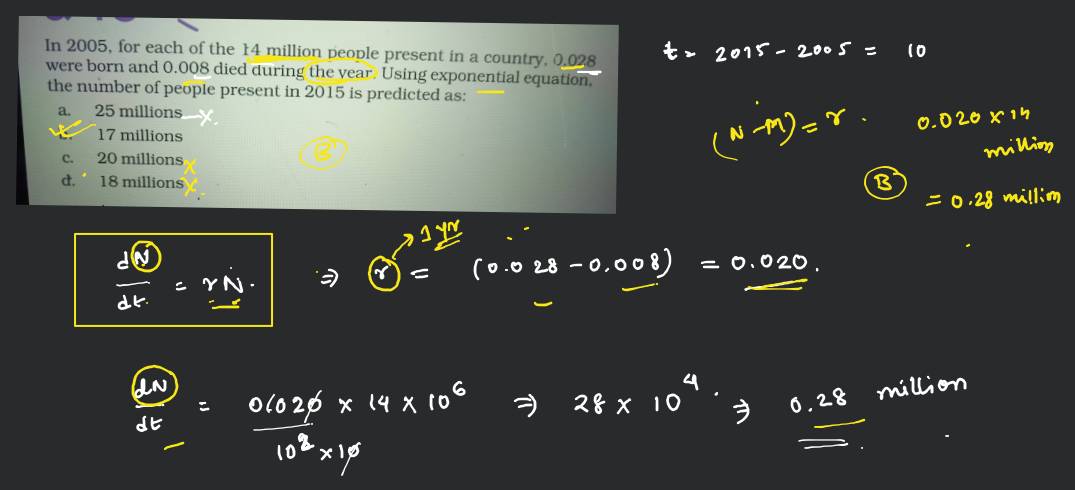 In 2005, for each of the 14 million people present in a country, 0.028
were born and 0.008 died during the year. Using exponential equation,
the number of people present in 2015 is predicted as:
a. 25 millions x.
17 millions
c. 20 millions x
d. 18 millions x.
B
t = 2015 - 2005 = 10
(N - M) = r.
0.020 x 14
million
B
= 0.28 million
dN/dt = rN. ⇒ r = (0.028 - 0.008) = 0.020.
1 yr
dN/dt = 0.020/10² x 10 x 14 x 10⁶ ⇒ 28 x 10⁴. ⇒ 0.28 million